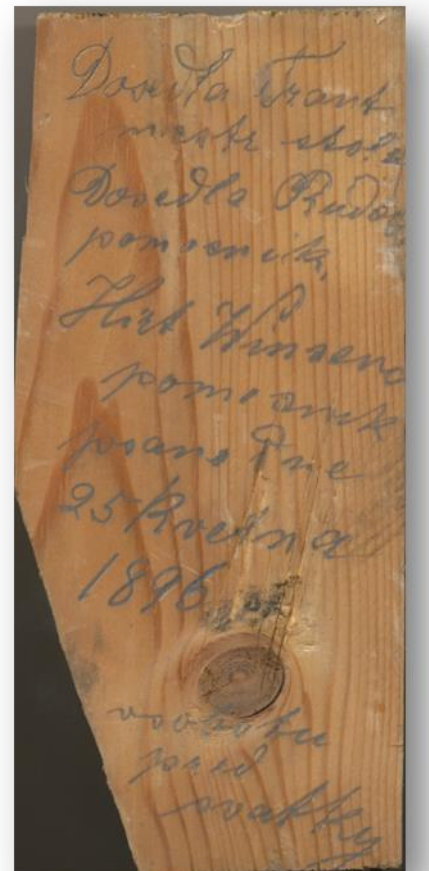 Dosedla Frant
mistr stola
Dosedla Rudo
pomocnik
Hict Winzenc
pomocnik
psano dne
25 Května
1896
vsobotu
před
svatky